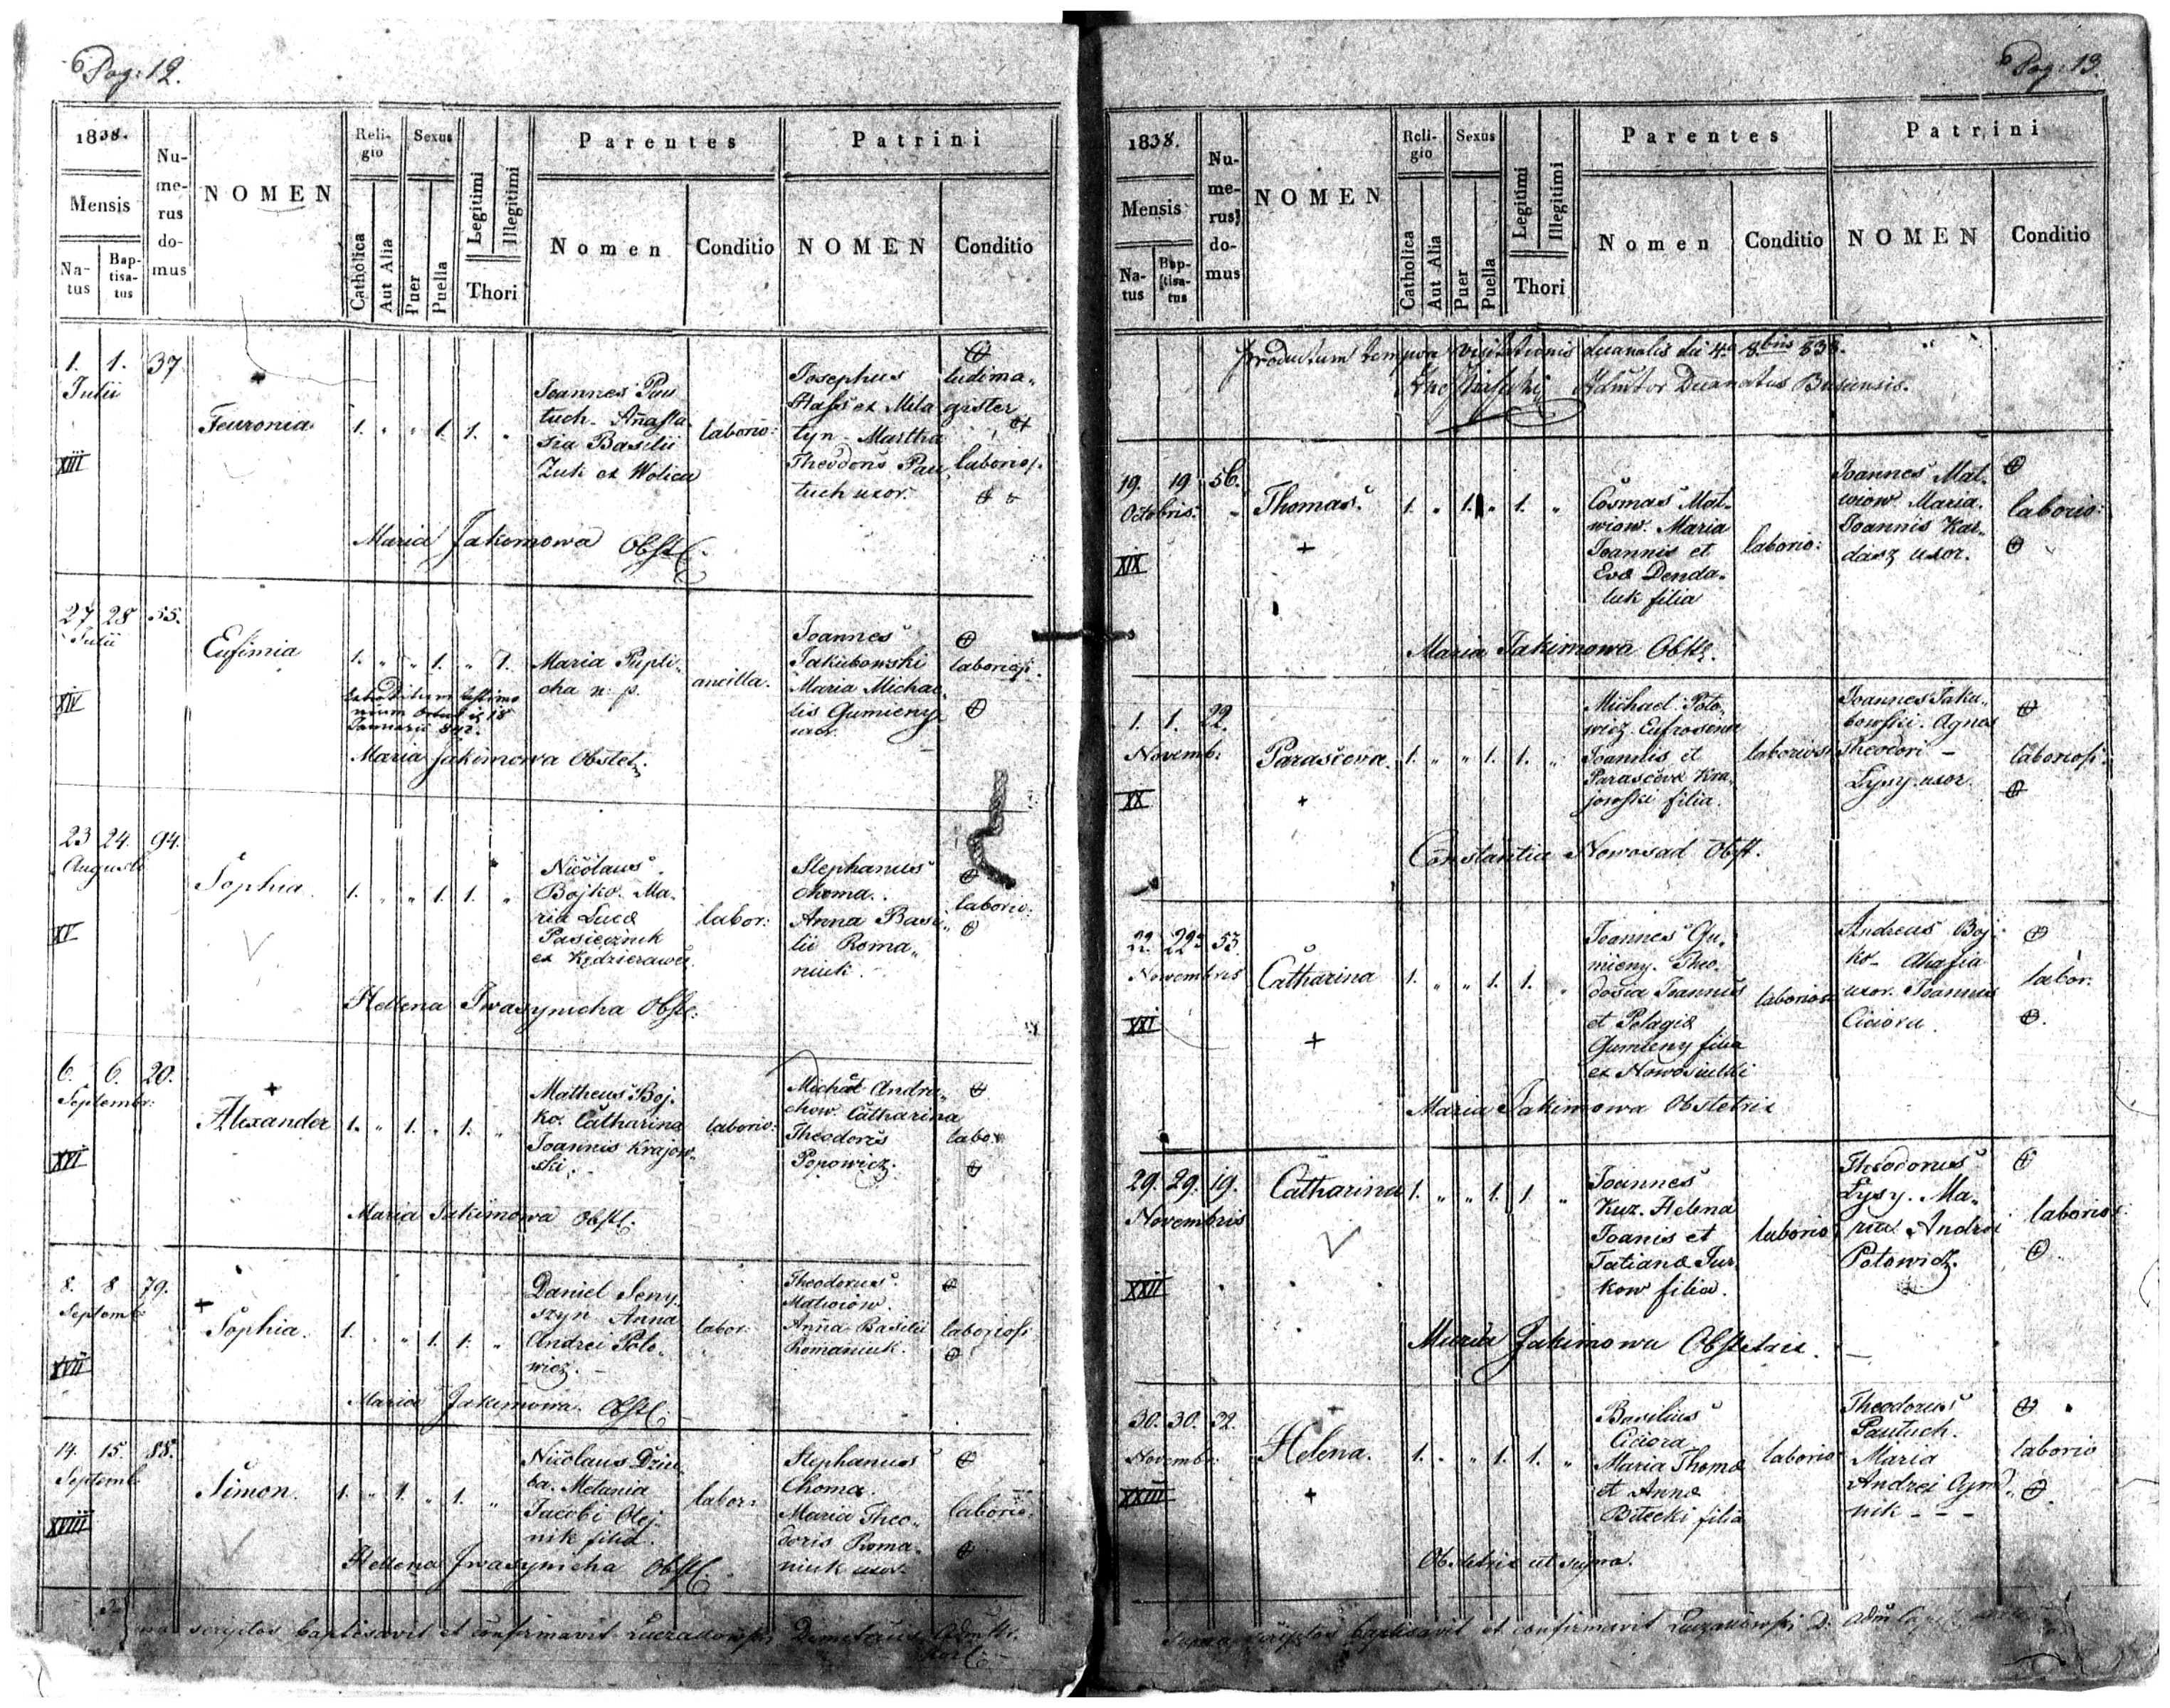 Pag: 12.
1838.
Mensis
Na-
tus
Bap-
tisa-
tus
Nu-
me-
rus
do-
mus
NOMEN
Reli-
gio
Catholica
Aut Alia
Sexus
Puer
Puella
Legitimi
Illegitimi
Thori
Parentes
Nomen
Conditio
Patrini
NOMEN
Conditio
1. 1. 37.
Julii
XIII
Feuronia
1. " " 1. 1. "
Joannes Pau
tuch. Anasta
sia Basilii
Zuk ex Wolica
laborio:
Josephus
ex Mila
tyn Martha
Theodoris Pau
tuch uxor.
ludima„
gister
laborios.
Maria Jakimowa Obst.
27 28 55.
Julii
XIV
Eufimia
1. " " 1. " 1.
Maria Pupli
cha n. p.
ancilla.
Joannes
Jakubowski
Maria Michae
lis Gumieny
uxor.
laboriosi.
Extraditum testimo
nium 18
Januarii 842.
Maria Jakimowa Obstet.
23 24. 94.
Augusti
XV
Sophia.
1. " " 1. 1. "
Nicolaus
Bojko. Ma-
ria Lucæ
Pasiecznik
ex
labor:
Stephanus
Choma.
Anna Basi„
lii Roma„
niuk.
laborio:
Hellena Iwasynicha Obst:
6. 6. 20.
Septembr:
XVI
Alexander
1. " 1. " 1. "
Matheus Boj-
ko. Catharina
Joannis Krajow-
ski.
laborio:
Michael Andru„
chow. Catharina
Theodoris
Popowicz.
labor
Maria Jakimowa Obst.
8. 8 79.
Septemb
XVII
Sophia.
1. " " 1. 1. "
Daniel Seny
szyn Anna
Andrei Poto-
wicz.
labor:
Theodorus
Matwiów.
Anna Basilii
Romaniuk.
laboriosi
Maria Jakimowa Obst.
14. 15. 85.
Septemb
XVIII
Simon.
1. " 1. " 1. "
Nicolaus Dziu
ba. Melania
Jacobi Olej-
nik filia.
labor:
Stephanus
Choma.
Maria Theo„
doris Roma„
niuk uxor.
laborio.
Hellena Iwasynicha Obst.
scriptos baptisavit et confirmavit Demetrius
Pag: 13.
1838.
Mensis
Na-
tus
Bap-
tisa-
tus
Nu-
me-
rus
do-
mus
NOMEN
Reli-
gio
Catholica
Aut Alia
Sexus
Puer
Puella
Legitimi
Illegitimi
Thori
Parentes
Nomen
Conditio
Patrini
NOMEN
Conditio
Productum tempore visitationis decanalis die 4. 8bris 838.
Decanatus Busensis.
19. 19 56.
Octobris.
XIX
Thomas.
1. " 1. " 1. "
Cosmas Mat-
wiow. Maria
Joannis et
Evæ Denda-
luk filia
laborio:
Joannes Mat-
wiow Maria
Joannis Kar-
darz uxor.
laborio:
Maria Jakimowa Obst.
1. 1. 22.
Novemb:
XX
Parasceva.
1. " " 1. 1. "
Michael Poto-
wicz Eufrosina
Joannis et
Parascevæ Kra-
jowski filia.
laborios:
Joannes Jaku„
bowski. Agnes
Theodori -
Lysy uxor.
laboriosi.
Constantia Nowosad Obst.
22. 22 53.
Novembris
XXI
Catharina
1. " " 1. 1. "
Joannes Gu-
mieny. Theo-
dosia Joannis
et Pelagiæ
Gumieny filia
ex Nowosiulki
laborios
Andreas Boj-
ko- Ahafia
uxor Joannes
Ciciora.
labor.
Maria Jakimowa Obstetrix
29. 29. 19.
Novembris
XXII
Catharina
1. " " 1. 1. "
Joannes
Kuz. Helena
Joanis et
Tatianæ Tur
kow filia.
laborio
Theodorus
Lysy. Ma-
ria Andrei
Potowicz.
laborios:
Maria Jakimowa Obstetrix.
30. 30. 22.
Novembr:
XXIII
Helena.
1. " " 1. 1. "
Basilius
Ciciora
Maria Thomæ
et Annæ
Bilecki filia
laborio
Theodorus
Pautuch.
Maria
Andrei
nik - - -
laborio
Obstetrix ut supra.
Supra scriptos baptisavit et confirmavit